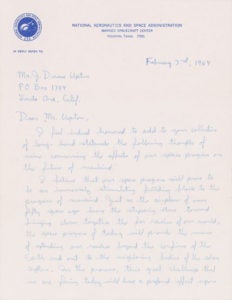 NATIONAL AERONAUTICS AND SPACE ADMINISTRATION
MANNED SPACECRAFT CENTER
HOUSTON, TEXAS 77058
IN REPLY REFER TO:
February 3rd, 1969
Mr. J. Upton
PO Box 1789
Santa Ana, Calif.
Dear Mr. Upton,
I feel indeed honored to add to your collection
of the following thoughts of
mine concerning the effects of our space program on
the future of mankind.
I believe that our space program will prove to
be an immensely stimulating building block to the
progress of mankind. Just as the airplane of some
fifty years ago was the stepping stone toward
bringing closer together the of our world,
the space program of today will provide the means
of extending our beyond the confines of the
Earth and out to the neighboring bodies of the solar
system. In the process, this great challenge that
we are facing today will have a profound effect upon